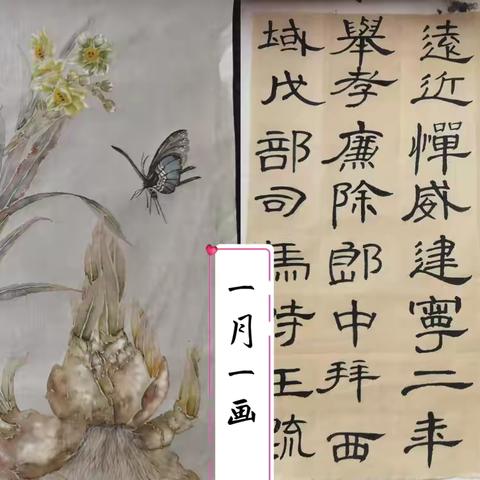 遠近憚威建寧二年
舉孝廉除郎中拜西
域戊部司馬時王疏
一月一画